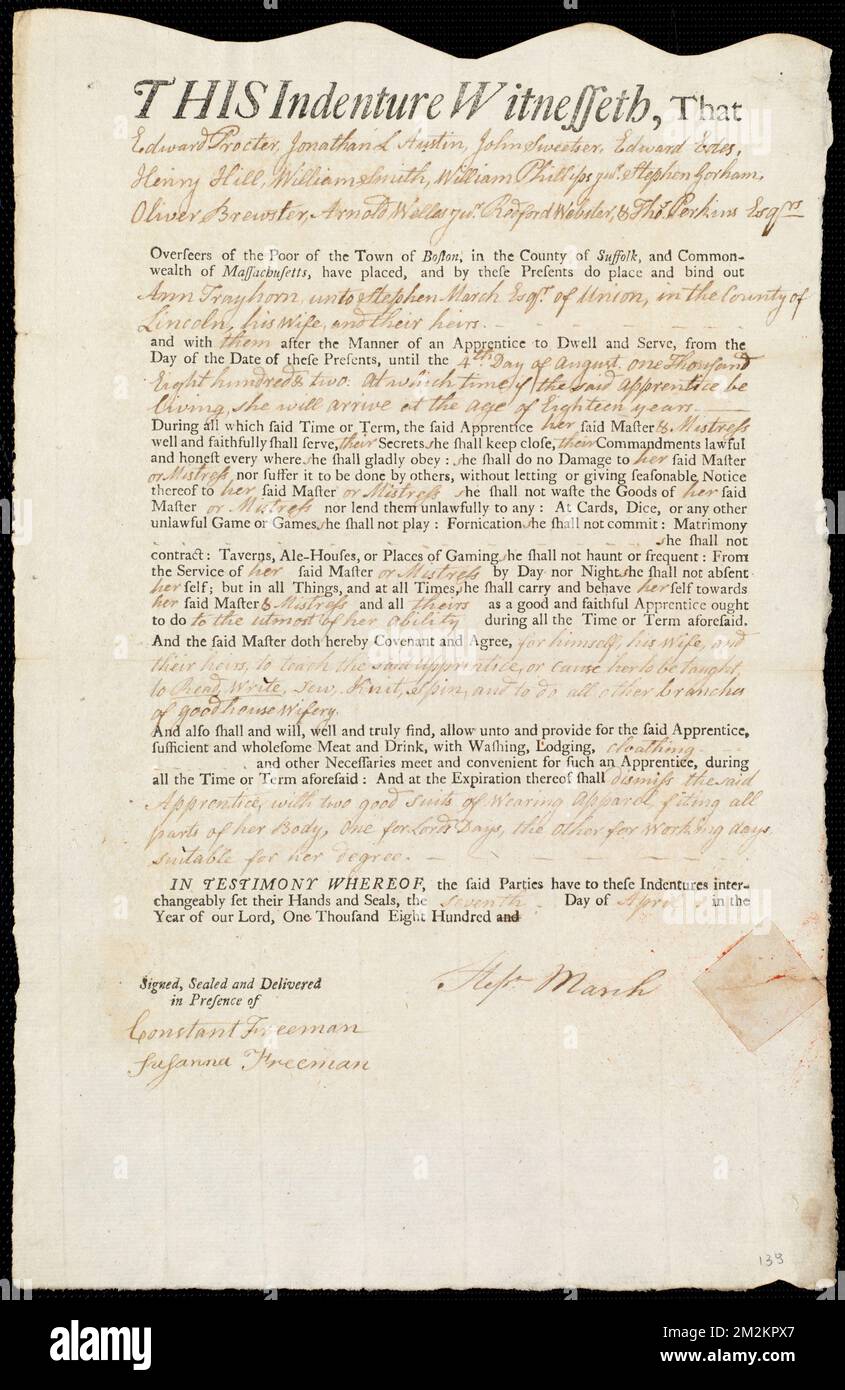 THIS Indenture Witneſſeth, That
Edward Procter, Jonathan L Austin, John Sweetser, Edward Edes,
Henry Hill, William Smith, William Phillips junr. Stephen Gorham,
Oliver Brewster, Arnold Welles junr. Redford Webster, & Thos. Perkins Esqrs
Overſeers of the Poor of the Town of Boſton, in the County of Suffolk, and Common-
wealth of Maſſachuſetts, have placed, and by theſe Preſents do place and bind out
Ann Trayhorn, unto Stephen March Esqr. of Union, in the County of
Lincoln, his Wife, and their heirs.
and with them after the Manner of an Apprentice to Dwell and Serve, from the
Day of the Date of theſe Preſents, until the 4th. Day of August one Thousand
Eight hundred & two. At which time if the said apprentice be
living, she will arrive at the age of Eighteen years.
During all which ſaid Time or Term, the ſaid Apprentice her ſaid Maſter & Mistreſs
well and faithfully ſhall ſerve, their Secrets she ſhall keep cloſe, their Commandments lawful
and honeſt every where she ſhall gladly obey : she ſhall do no Damage to her ſaid Maſter
or Mistreſs nor ſuffer it to be done by others, without letting or giving ſeaſonable Notice
thereof to her ſaid Maſter or Mistreſs she ſhall not waſte the Goods of her ſaid
Maſter or Mistreſs nor lend them unlawfully to any : At Cards, Dice, or any other
unlawful Game or Games she ſhall not play : Fornication she ſhall not commit : Matrimony
she ſhall not
contract : Taverns, Ale-Houſes, or Places of Gaming she ſhall not haunt or frequent : From
the Service of her ſaid Maſter or Mistreſs by Day nor Night she ſhall not abſent
her ſelf ; but in all Things, and at all Times, she ſhall carry and behave her ſelf towards
her ſaid Maſter & Mistreſs and all theirs as a good and faithful Apprentice ought
to do to the utmost of her ability during all the Time or Term aforeſaid.
And the ſaid Maſter doth hereby Covenant and Agree, for himself, his Wife, and
their heirs, to teach the said apprentice, or cause her to be taught
to Read, Write, Sew, Knit, Spin, and to do all other branches
of good house Wifery.
And alſo ſhall and will, well and truly find, allow unto and provide for the ſaid Apprentice,
ſufficient and wholeſome Meat and Drink, with Waſhing, Lodging, cloathing
and other Neceſſaries meet and convenient for ſuch an Apprentice, during
all the Time or Term aforeſaid : And at the Expiration thereof ſhall dismiſs the said
Apprentice, with two good Suits of Wearing Apparel, fiting all
parts of her Body, One for Lord's Days, the other for Working days
suitable for her degree.
IN TESTIMONY WHEREOF, the ſaid Parties have to theſe Indentures inter-
changeably ſet their Hands and Seals, the seventh Day of April in the
Year of our Lord, One Thouſand Eight Hundred and
Signed, Sealed and Delivered
in Preſence of
Stepn. March
Constant Freeman
Susanna Freeman
139
alamy
Image ID: 2M2KPX7
www.alamy.com